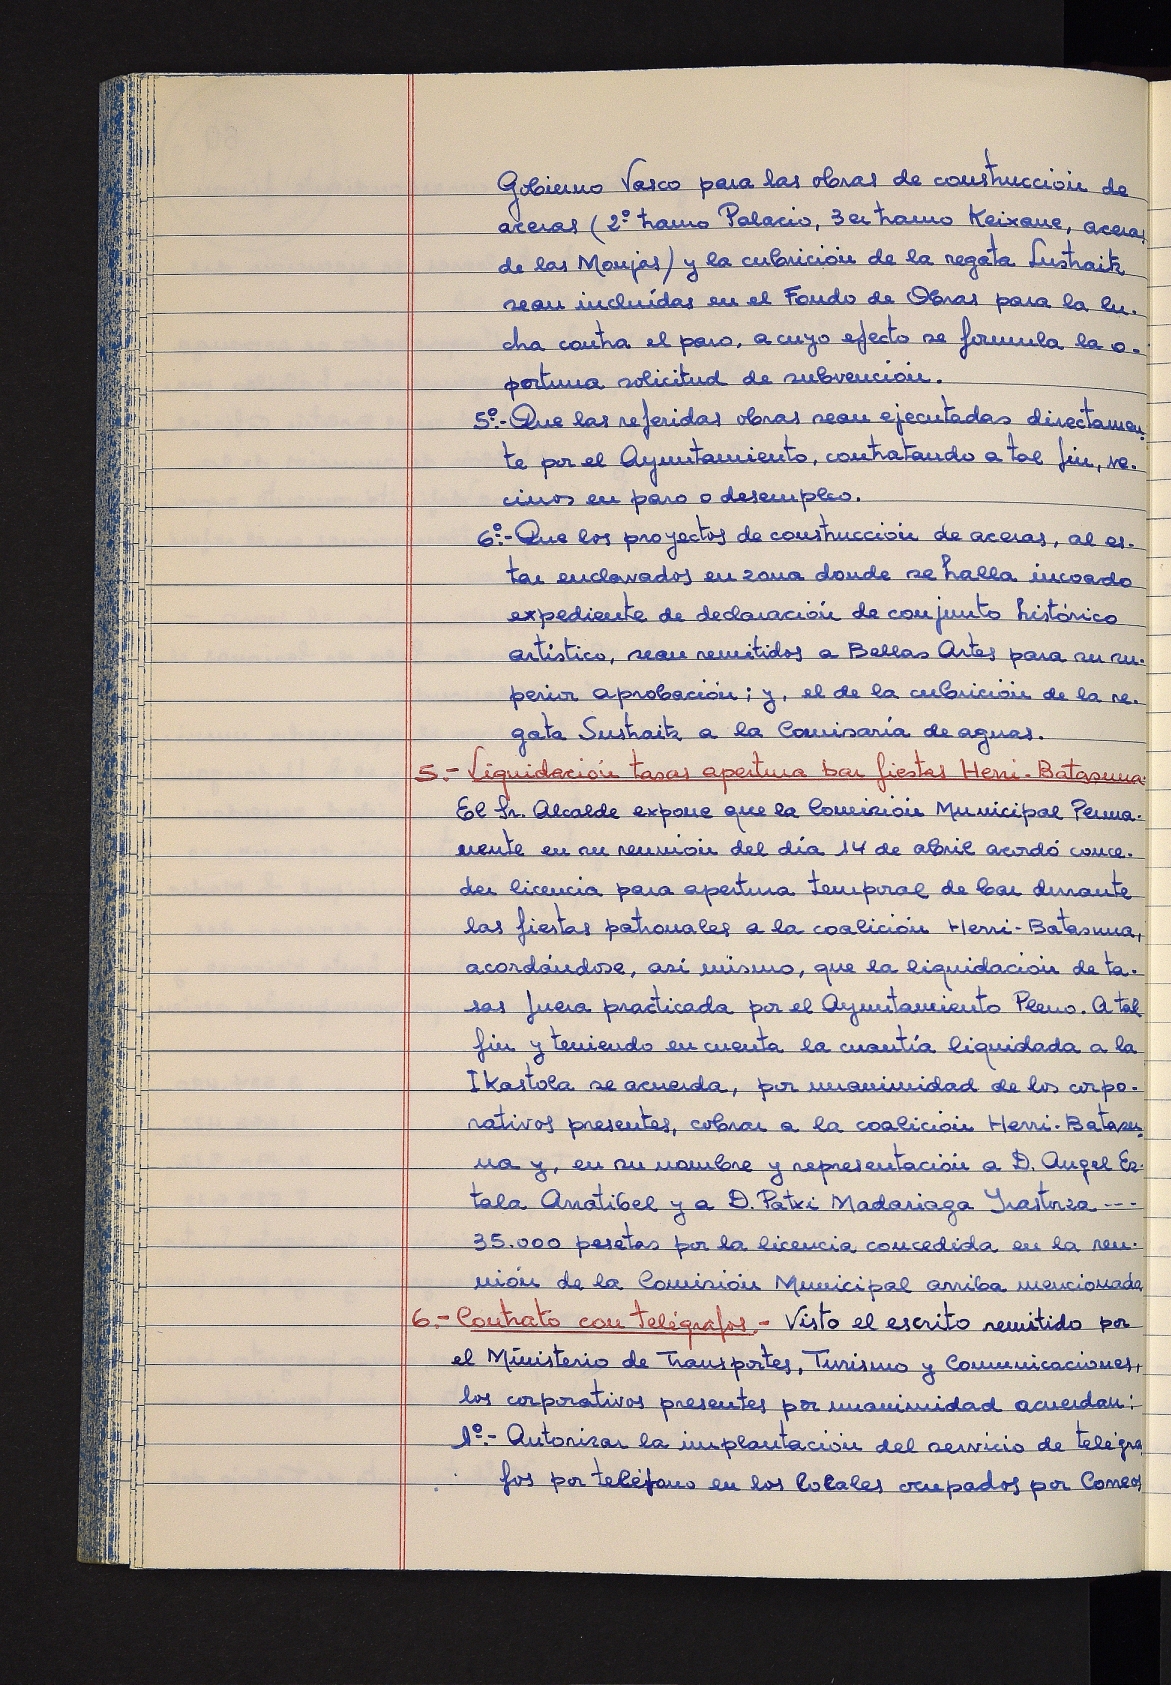 Gobierno Vasco para las obras de construcción de
aceras (2º tramo Palacio, 3er tramo Keixane, aceras
de las Monjas) y la cubrición de la regata Sustraitz
sean incluídas en el Fondo de Obras para la lu-
cha contra el paro, a cuyo efecto se formula la o-
portuna solicitud de subvención.
5º.- Que las referidas obras sean ejecutadas directamen-
te por el Ayuntamiento, contratando a tal fin, ve-
cinos en paro o desempleo.
6º.- Que los proyectos de construcción de aceras, al es-
tar enclavados en zona donde se halla incoado
expediente de declaración de conjunto histórico
artístico, sean remitidos a Bellas Artes para su su-
perior aprobación; y, el de la cubrición de la re-
gata Sustraitz a la Comisaría de aguas.
5.- Liquidación tasas apertura bar fiestas Herri-Batasuna-
El Sr. Alcalde expone que la Comisión Municipal Perma-
nente en su reunión del día 14 de abril acordó conce-
der licencia para apertura temporal de bar durante
las fiestas patronales a la coalición Herri-Batasuna,
acordándose, así mismo, que la liquidación de ta-
sas fuera practicada por el Ayuntamiento Pleno. A tal
fin y teniendo en cuenta la cuantía liquidada a la
Ikastola se acuerda, por unanimidad de los corpo-
rativos presentes, cobrar a la coalición Herri-Batasu-
na y, en su nombre y representación a D. Angel Ez-
tala Arratibel y a D. Patxi Madariaga Yrastorza ---
35.000 pesetas por la licencia concedida en la reu-
nión de la Comisión Municipal arriba mencionada
6.- Contrato con telégrafos.- Visto el escrito remitido por
el Ministerio de Transportes, Turismo y Comunicaciones,
los corporativos presentes por unanimidad acuerdan:
1º.- Autorizar la implantación del servicio de telégra
fos por teléfono en los locales ocupados por Correos